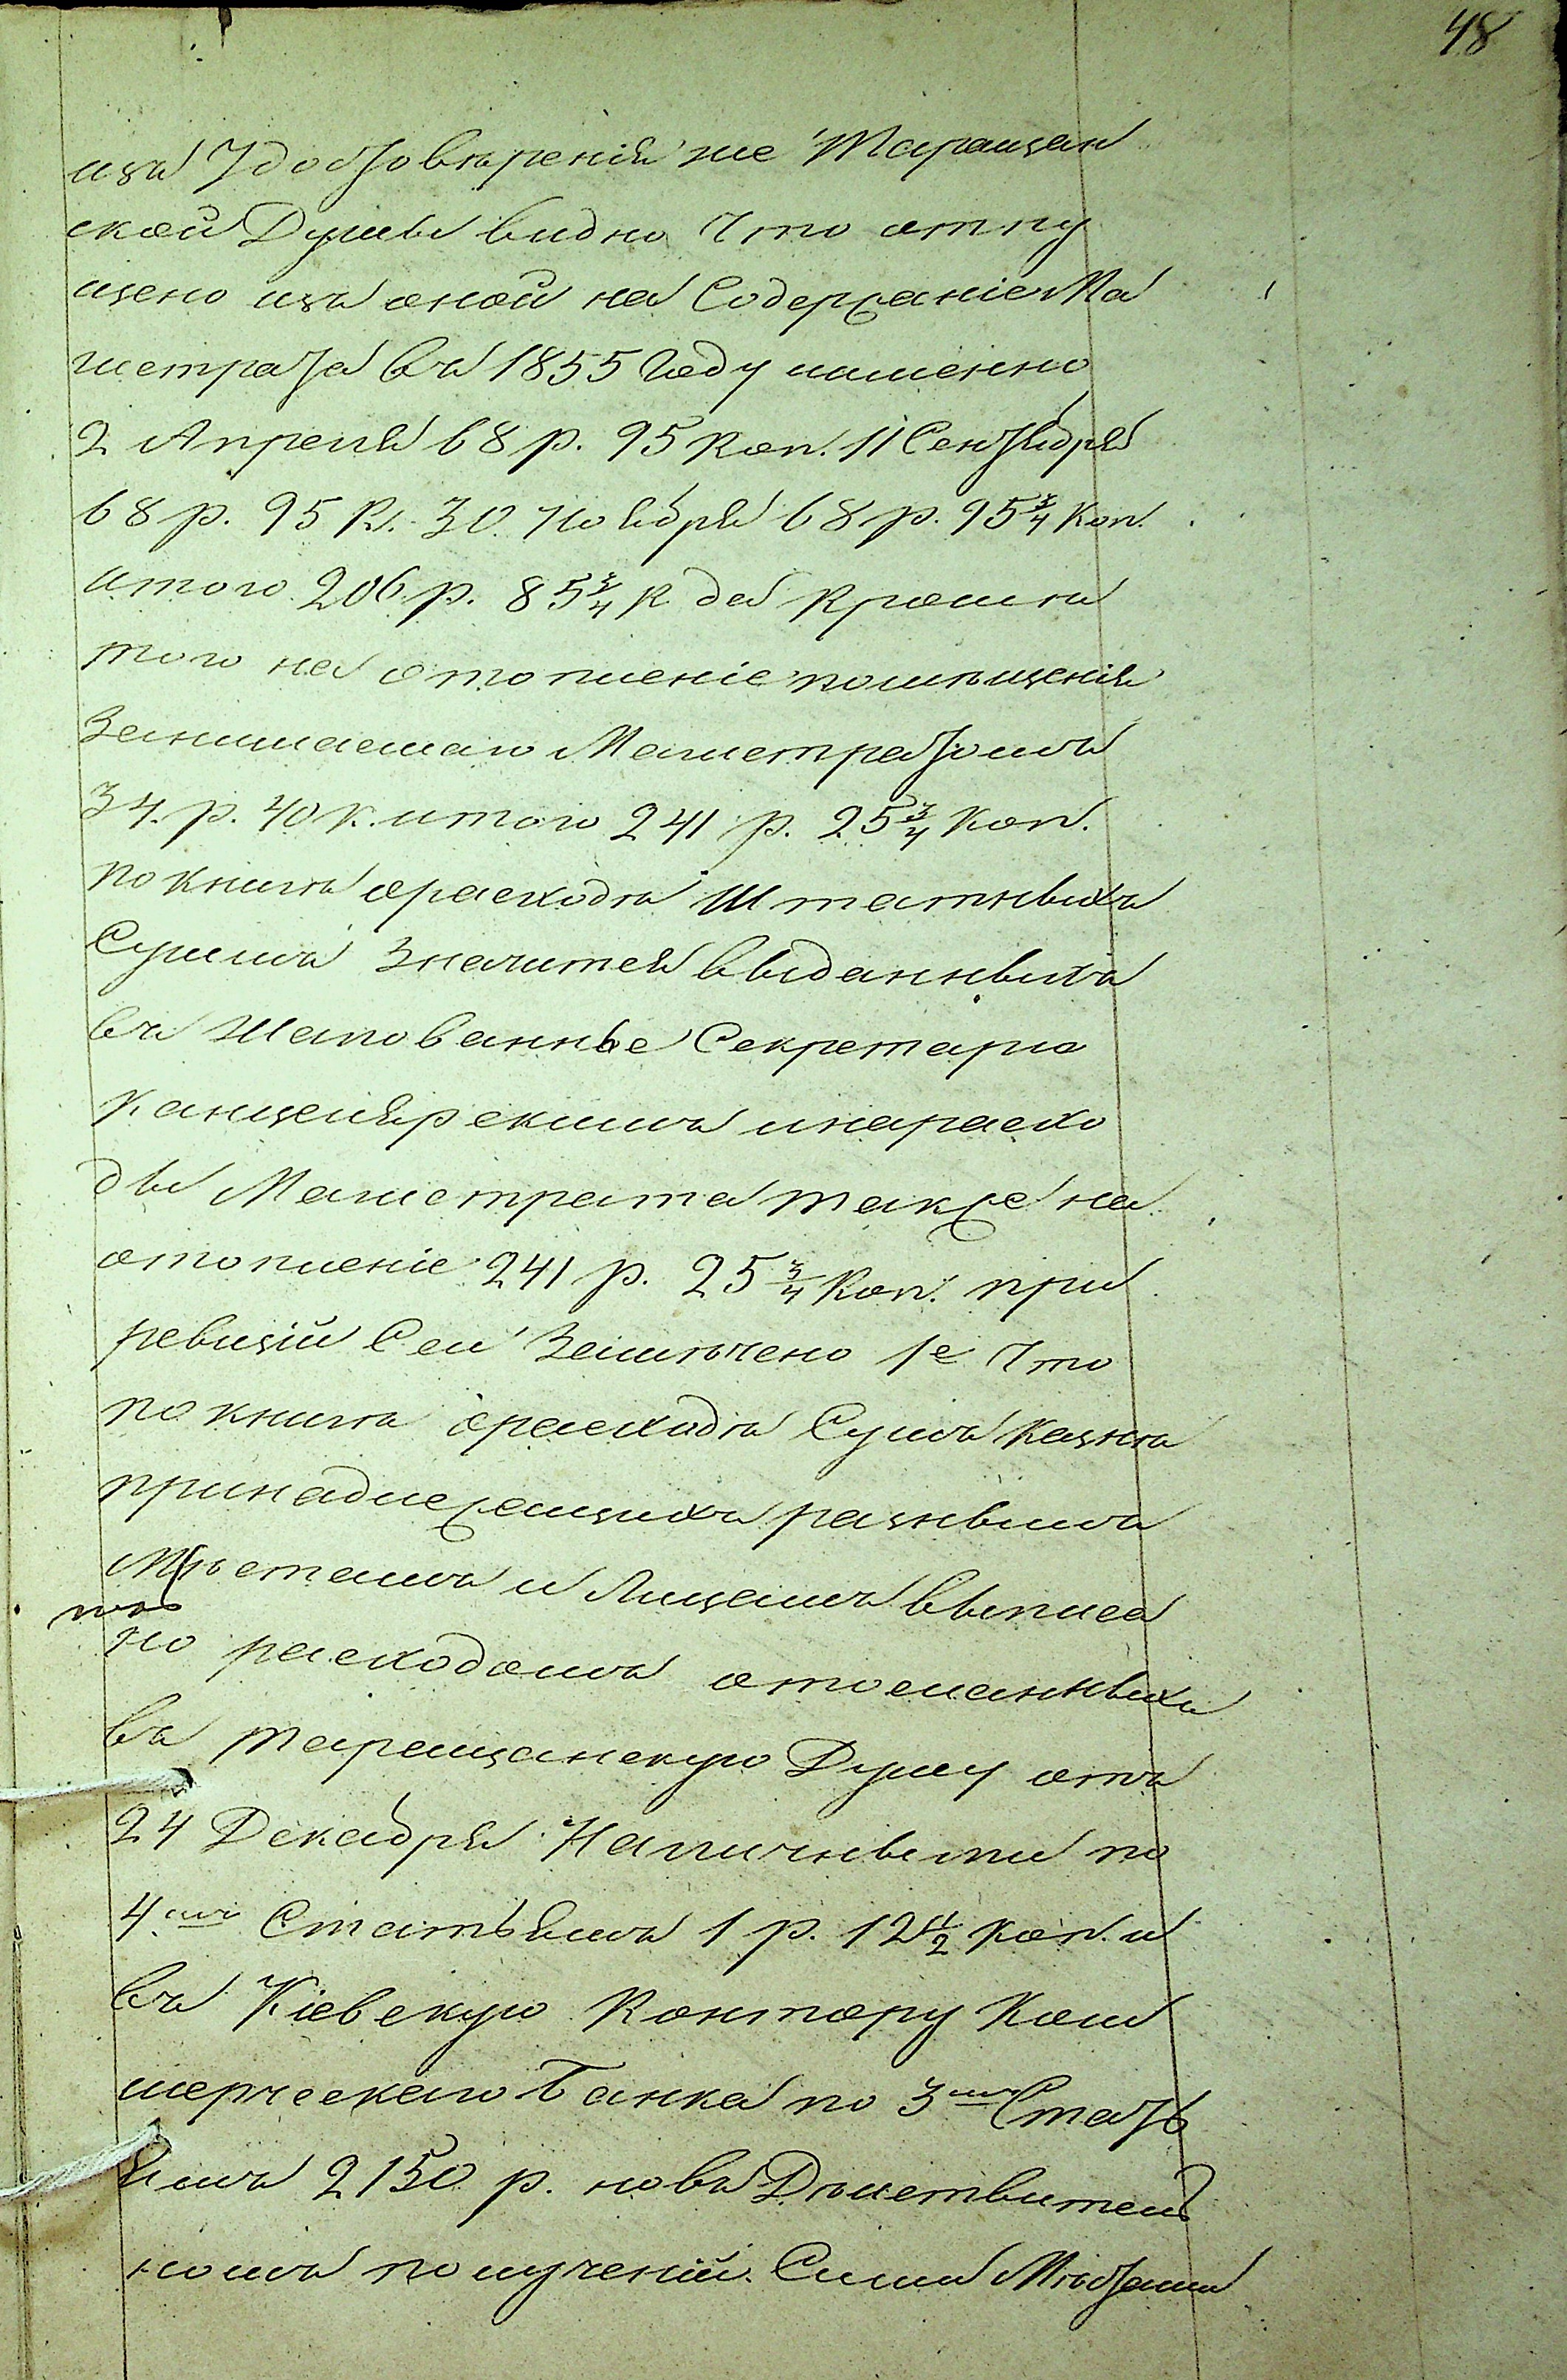 48
изъ Удостовѣренія же Таращан
ской Думы видно что отпу
щено изъ оной на Содержаніе Ма
гистрата въ 1855 Году именно
2 Апреля 68 р. 95 коп. 11 Сентября
68 р. 95 к. 30 Ноября 68 р. 95 3/4 коп.
итого 206 р. 85 3/4 к да кроме
того на отопленіе помѣщенія
Занимаемаго Магистратомъ
34. р. 40 к. итого 241 р. 25 3/4 коп.
по книгѣ орасходѣ Штатныхъ
Суммъ Значится выданныхъ
въ Жалованнье Секретарю
Канцелярскимъ инарасхо
ды Магистрата также на
отопленіе 241 р. 25 3/4 коп. при
ревизіи Сей Замѣчено 1е что
по книгѣ орасходѣ Сумъ казнѣ
принадлежащихъ разнымъ
Мѣстамъ и Лицамъ выписа
но расходомъ отосланныхъ
въ таращанскую Думу отъ
24 Декабря Наличными по
4.мъ Статьямъ 1 р. 12 1/2 коп. и
въ Кіевскую Контору Ком
мерческаго Банка по 3мъ Стать
ямъ 2150 р. новъ Дѣйствитель
номъ полученіи Сими Мѣстами